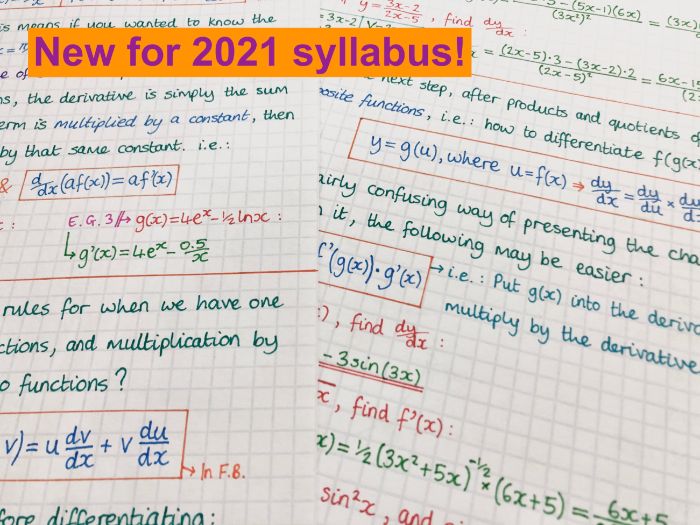 New for 2021 syllabus!
is means if you wanted to know the
e of
s, the derivative is simply the sum
erm is multiplied by a constant, then
by that same constant. i.e.:
& d/dx (af(x)) = af'(x)
E.G. 3 g(x) = 4eˣ - ½ ln x :
g'(x) = 4eˣ - 0.5/x
rules for when we have one
ctions, and multiplication by
o functions?
v) = u dv/dx + v du/dx
→ In F.B.
fore differentiating:
y = 3x-2/2x-5, find dy/dx :
= (2x-5)·3 - (3x-2)·2/(2x-5)² = 6x-15
next step, after products and quotients of
osite functions, i.e.: how to differentiate f(g(x
y = g(u), where u = f(x) → dy/dx = dy/du × du
airly confusing way of presenting the cha
it, the following may be easier:
f'(g(x))·g'(x) → i.e.: Put g(x) into the deriva
multiply by the derivative
), find dy/dx :
- 3sin(3x)
x, find f'(x):
x) = ½ (3x²+5x)^-½ × (6x+5) = 6x+5
sin²x, and